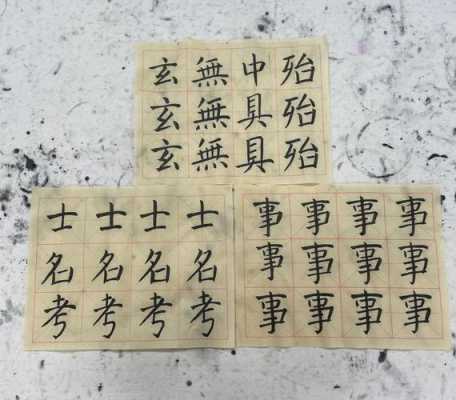 玄無中殆
玄無具殆
玄無具殆
士士士士
名名名名
考考考考
事事事事
事事事事
事事事事